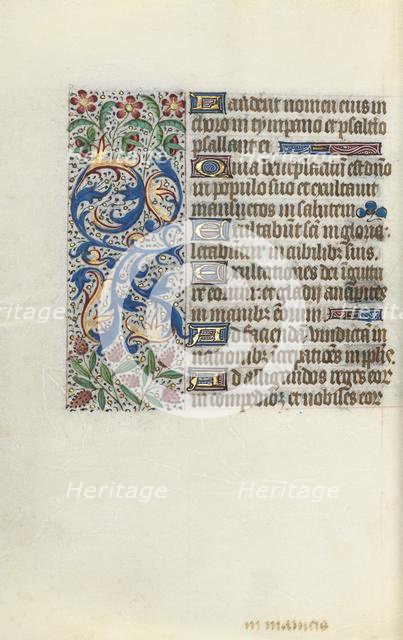 Laudent nomen eius in
choro in tympano et psalterio
psallant ei
Quia beneplacitum est dño
in populo suo et exultant
mansuetos in salutem
Exultabunt sc̃i in gloria:
letabuntur in cubilibus suis.
Exultationes dei in guttu
re eorum: et gladii ancipites
in manibus eorum
Ad faciendam vindictam in
nationibus increpationes in pplis.
Ad alligandos reges eor
in compedibus et nobiles eor
in manicis
Heritage
Heritage
Heritage
Heritage
Heritage
Heritage
Heritage
Heritage